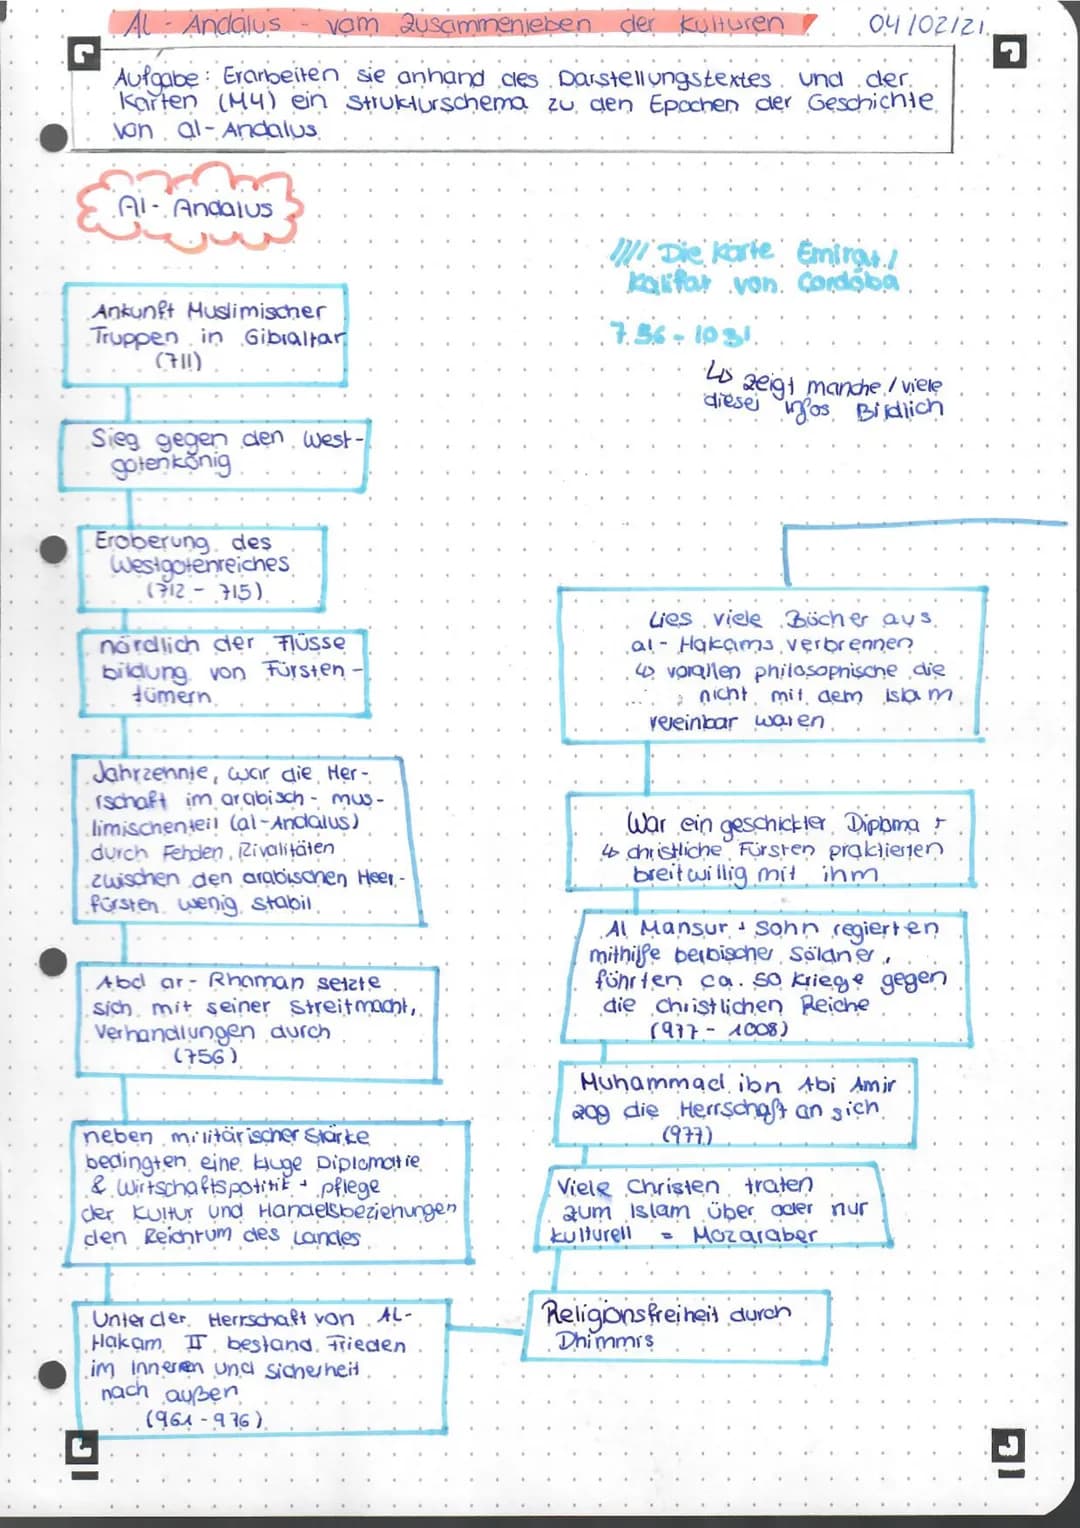 Al - Andalus - vom Zusammenleben der Kulturen 04/02/21
Aufgabe: Erarbeiten sie anhand des Darstellungstextes und der
Karten (M4) ein Strukturschema zu den Epochen der Geschichte
von al-Andalus.
Al- Andalus
Die Karte Emirat/
Kalifat von Cordoba
756 - 1031
↳ zeigt manche / viele
dieser Infos Bildlich
Ankunft Muslimischer
Truppen in Gibraltar
(711)
Sieg gegen den West-
gotenkönig
Eroberung des
Westgotenreiches
(712 - 715)
nördlich der Flüsse
bildung von Fürsten-
tümern
Jahrzennte, war die Her-
rschaft im arabisch - mus-
limischenteil (al-Andalus)
durch Fehden, Rivalitäten
zwischen den arabischen Heer-
fürsten wenig stabil
Abd ar- Rhaman setzte
sich mit seiner Streitmacht,
Verhandlungen durch
(756)
neben militärischer Stärke
bedingten eine kluge Diplomatie
& Wirtschaftspolitik + pflege
der Kultur und Handelsbeziehungen
den Reichtum des Landes
Unter der Herrschaft von AL-
Hakam II bestand Frieden
im Inneren und sicherheit
nach außen
(961 - 976)
Lies viele Bücher aus
al- Hakams verbrennen
↳ vorallen philosophische die
nicht mit dem islam
vereinbar waren
War ein geschickter Diplomat
↳ christliche Fürsten praktierten
breitwillig mit ihm
Al Mansur + Sohn regierten
mithilfe berbischer Söldner,
führten ca. 50 Kriege gegen
die christlichen Reiche
(977 - 1008)
Muhammad ibn Abi Amir
zog die Herrschaft an sich
(977)
Viele Christen traten
zum Islam über oder nur
kulturell = Mozaraber
Religionsfreiheit durch
Dhimmis